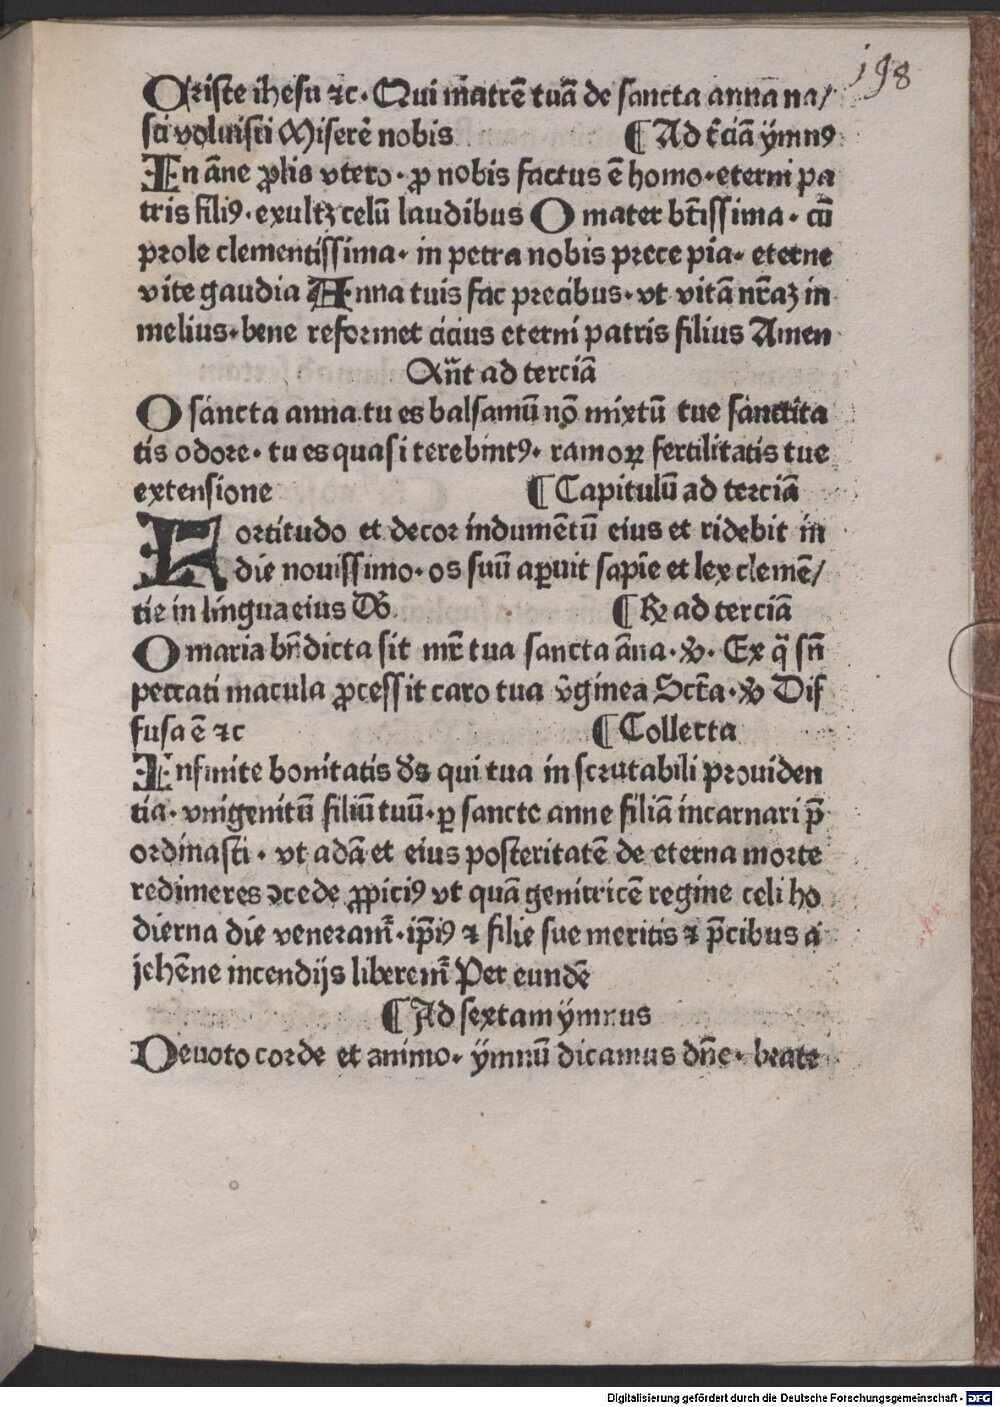 198
Criste ihesu ⁊c· Qui mr̄atrē tuā de sancta anna na/
sci voluisti Miserē nobis ¶ Ad t̄ciā ymnꝰ
In āne ꝓlis vtero· ꝓ nobis factus ē homo· eterni pa
tris filiꝰ· exultꝫ celū laudibus O mater bt̄issima· cū
prole clementissima· in petra nobis prece pia· eterne
vite gaudia Anna tuis fac precibus· vt vitā nr̄aꝫ in
melius· bene reformet cicius eterni patris filius Amen
An̄t ad terciā
O sancta anna tu es balsamū nō mixtū tue sanctita
tis odore· tu es quasi terebintꝰ· ramoꝝ fertilitatis tue
extensione ¶ Capitulū ad terciā
Fortitudo et decor indumētū eius et ridebit in
die nouissimo· os suū aꝑuit sapiē et lex clemē/
tie in lingua eius D̄S ¶ ℟ ad terciā
O maria bn̄dicta sit mr̄ tua sancta āna· ℣· Ex q̄ sn̄
peccati macula ꝓcessit caro tua v̄ginea Sct̄a· ℣ Dif
fusa ē ⁊c ¶ Collecta
Infinite bonitatis d̄s qui tua in scrutabili prouiden
tia· vnigenitū filiū tuū· ꝑ sancte anne filiā incarnari p̄
ordinasti· vt adā et eius posteritatē de eterna morte
redimeres ↄcede ꝓpiciꝰ vt quā genitricē regine celi ho
dierna die veneram̄· ip̄iꝰ ⁊ filie sue meritis ⁊ p̄cibus a
jehēne incendijs liberem̄ Per eundē
¶ Ad sextam ymnus
Deuoto corde et animo· ymnū dicamus dn̄e· beate
Digitalisierung gefördert durch die Deutsche Forschungsgemeinschaft - DFG